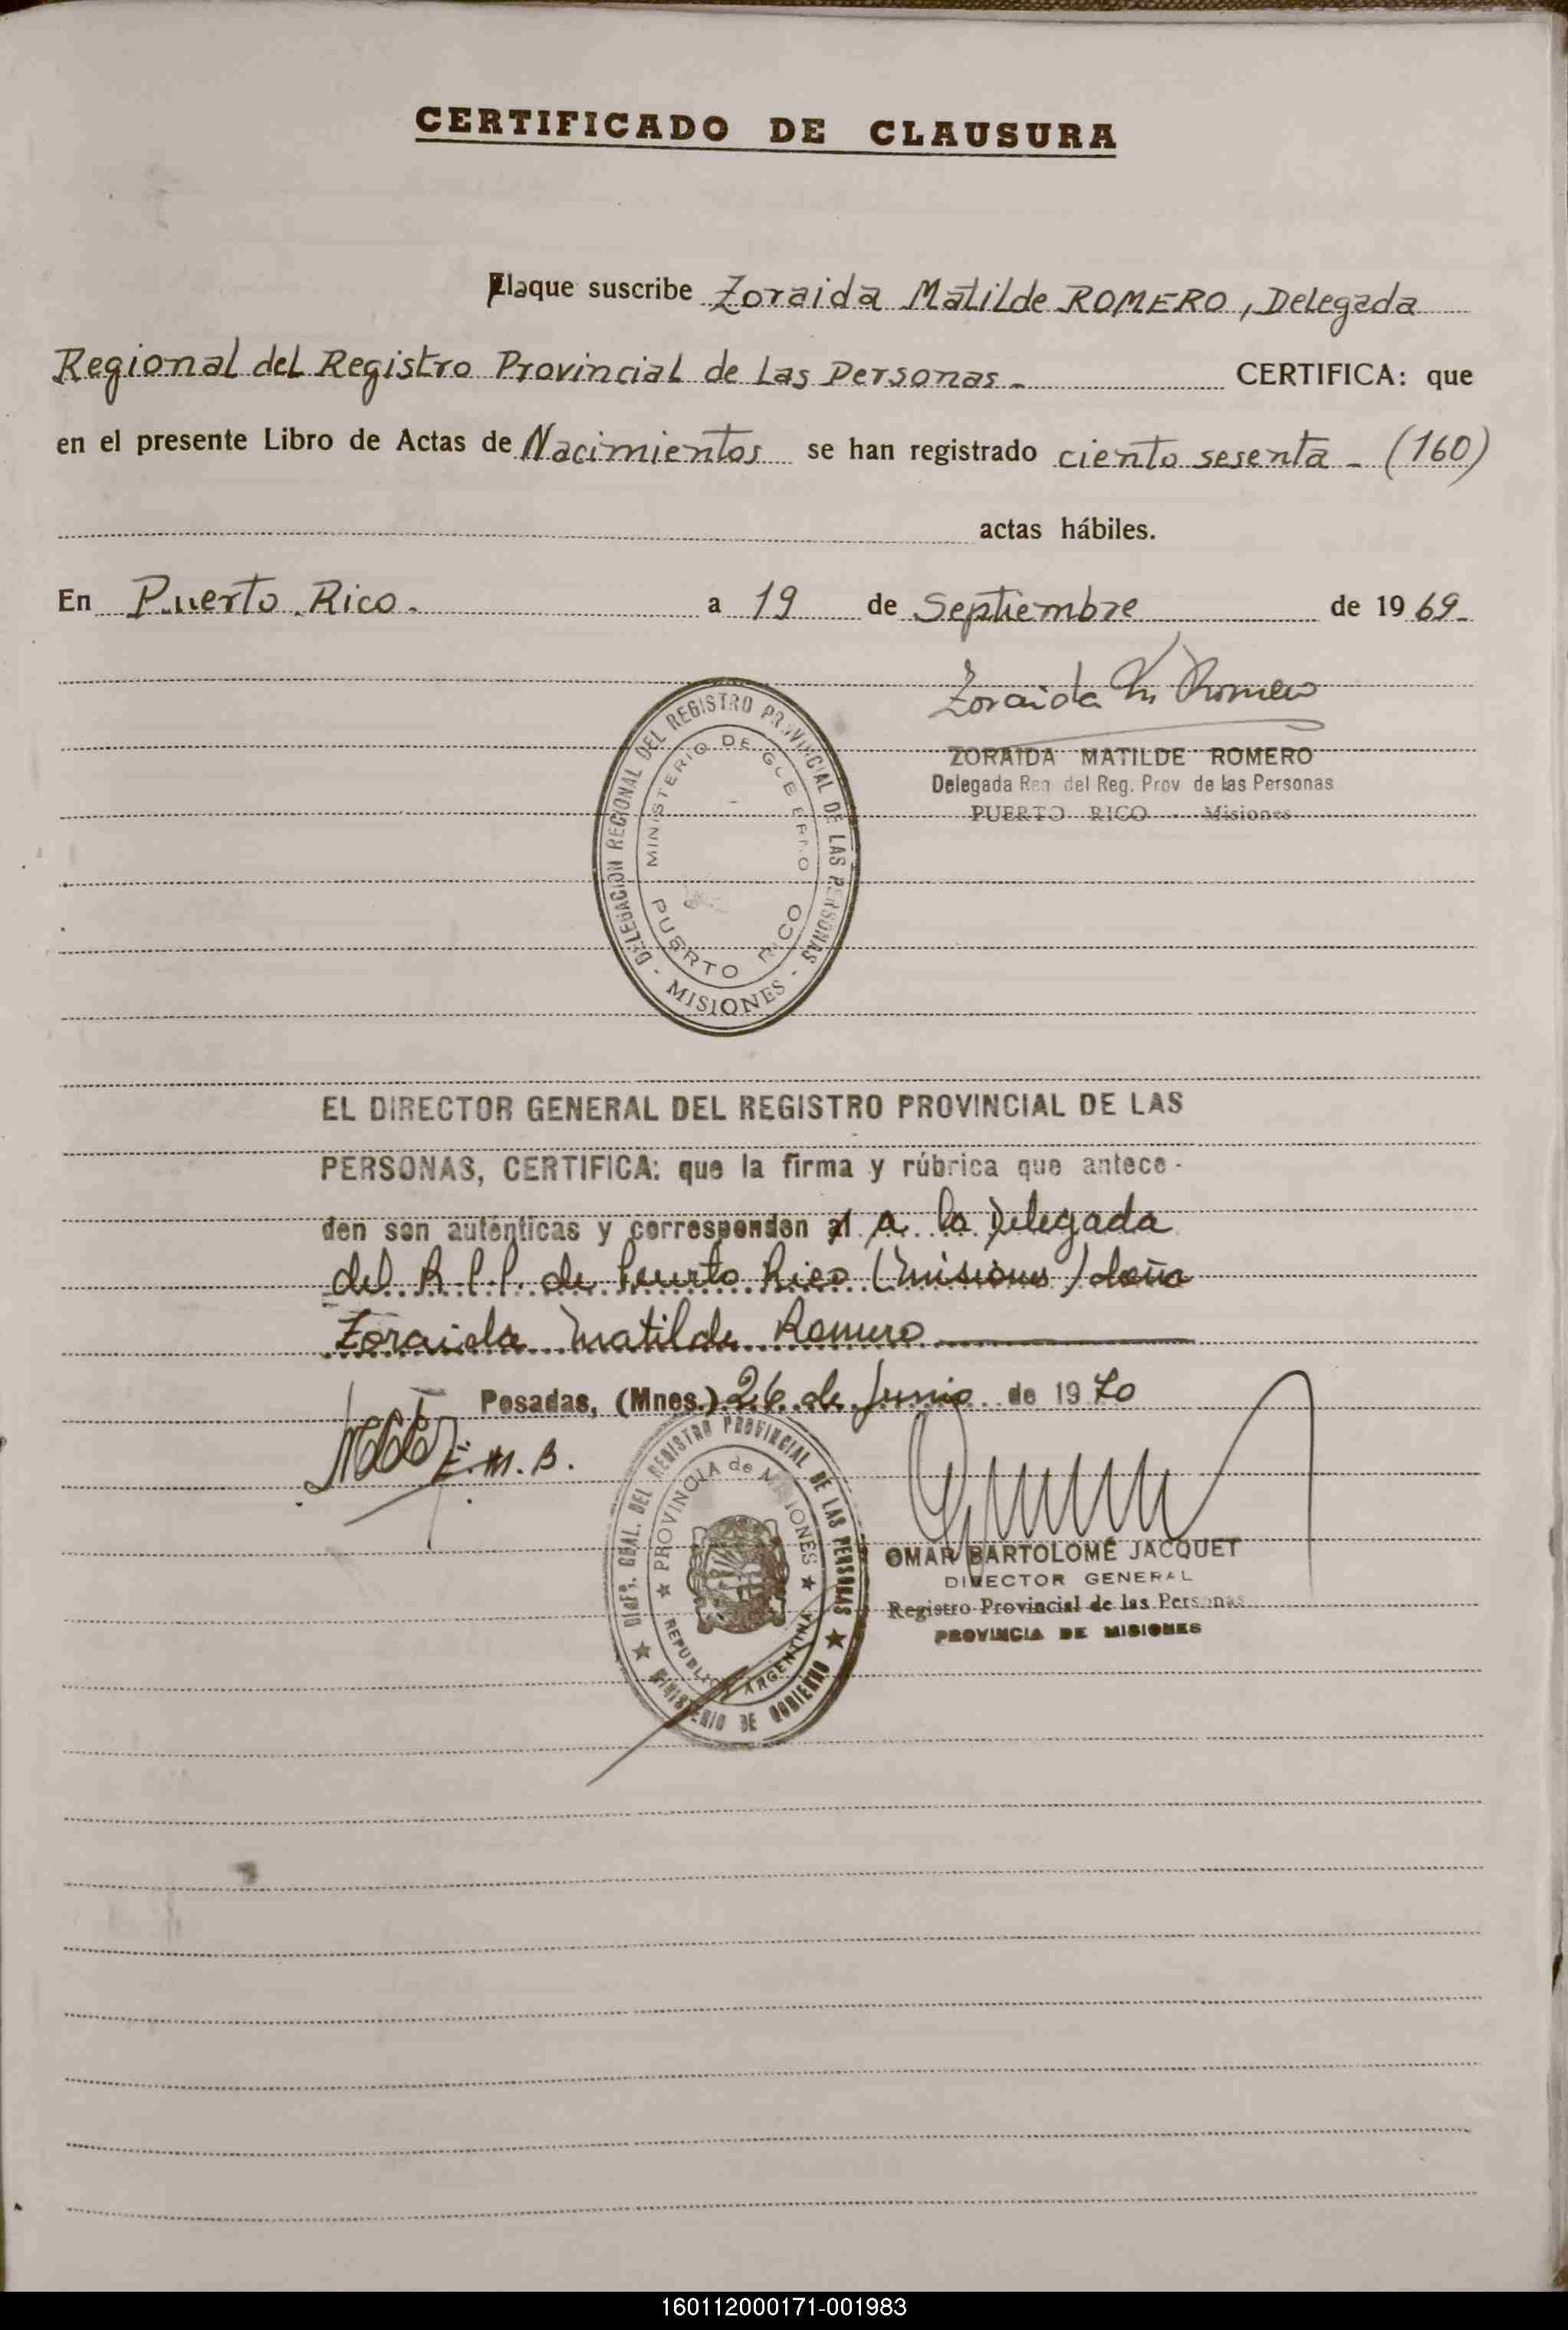 CERTIFICADO DE CLAUSURA
La que suscribe Zoraida Matilde ROMERO, Delegada
Regional del Registro Provincial de Las Personas - CERTIFICA: que
en el presente Libro de Actas de Nacimientos se han registrado ciento sesenta - (160)
actas hábiles.
En Puerto Rico. a 19 de Septiembre de 1969-
Zoraida M Romero
ZORAIDA MATILDE ROMERO
Delegada Reg del Reg. Prov de las Personas
PUERTO RICO - Misiones
DELEGACIÓN REGIONAL DEL REGISTRO PROVINCIAL DE LAS PERSONAS
- MISIONES -
MINISTERIO DE GOBIERNO
PUERTO RICO
EL DIRECTOR GENERAL DEL REGISTRO PROVINCIAL DE LAS
PERSONAS, CERTIFICA: que la firma y rúbrica que antece-
den son auténticas y corresponden al a la Delegada
del R.P.P. de Puerto Rico (Misiones) doña
Zoraida Matilde Romero
Posadas, (Mnes.) 26 de Junio de 1970
E.M.B.
DIREC. GRAL. DEL REGISTRO PROVINCIAL DE LAS PERSONAS
MINISTERIO DE GOBIERNO
PROVINCIA de MISIONES
REPUBLICA ARGENTINA
OMAR BARTOLOMÉ JACQUET
DIRECTOR GENERAL
Registro Provincial de las Personas
PROVINCIA DE MISIONES
160112000171-001983